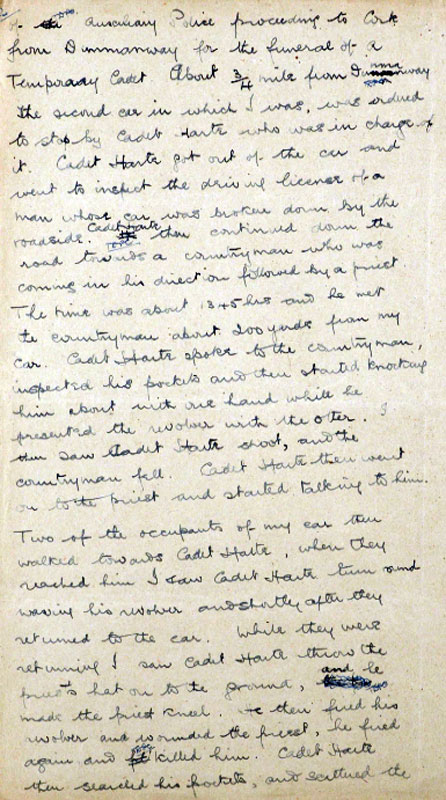 of Auxiliary Police proceeding to Cork
from Dunmanway for the funeral of a
Temporary Cadet About 3/4 mile from Dunmanway
the second car in which I was, was ordered
to stop by Cadet Harte who was in charge of
it. Cadet Harte got out of the car and
went to inspect the driving license of a
man whose car was broken down by the
roadside. Cadet Harte then continued down the
road towards a countryman who was
coming in his direction followed by a priest
The time was about 1345 hrs and he met
the countryman about 200 yards from my
car. Cadet Harte spoke to the countryman,
inspected his pockets and then started knocking
him about with one hand while he
presented the revolver with the other. I
then saw Cadet Harte shoot, and the
countryman fell. Cadet Harte then went
on to the priest and started talking to him.
Two of the occupants of my car then
walked towards Cadet Harte, when they
reached him I saw Cadet Harte turn round
waving his revolver and shortly after they
returned to the car. While they were
returning I saw Cadet Harte throw the
priest's hat on to the ground, and he
made the priest kneel. He then fired his
revolver and wounded the priest, he fired
again and killed him. Cadet Harte
then searched his pockets, and scattered the